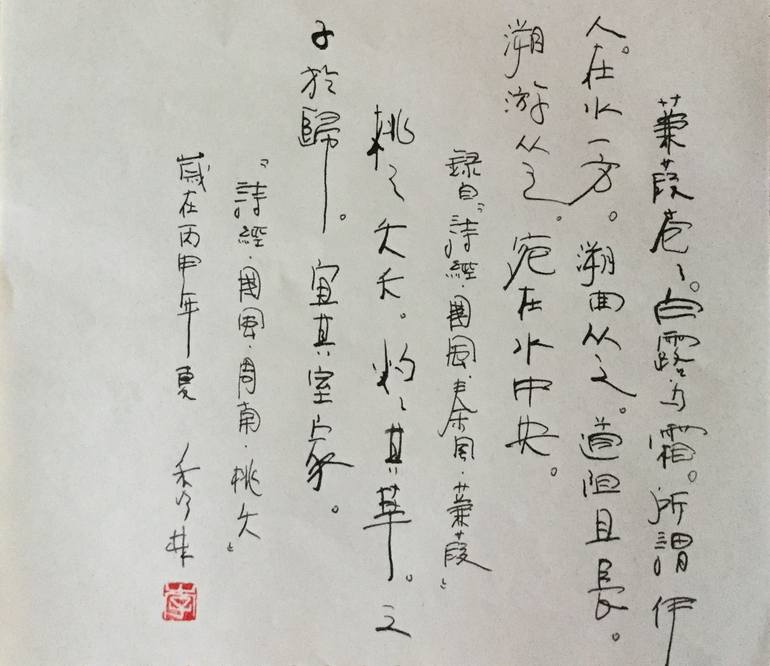 蒹葭苍々。白露为霜。所謂伊
人。在水一方。溯曲从之。道阻且長。
溯游从之。宛在水中央。
録自『詩經·國風·秦風·蒹葭』
桃之夭夭。灼々其華。之
子於歸。宜其室家。
『詩經·國風·周南·桃夭』
歲在丙申年夏